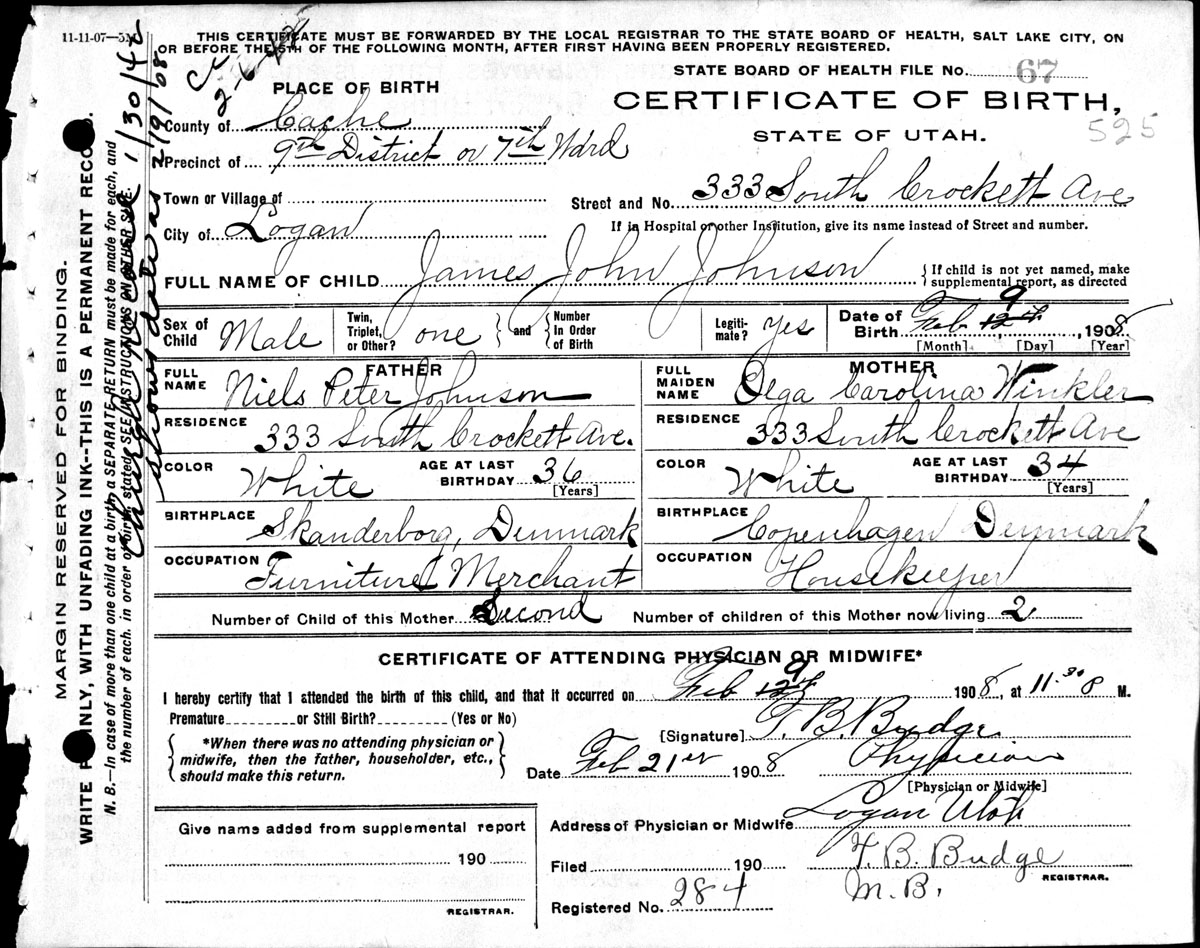 11-11-07—
THIS CERTIFICATE MUST BE FORWARDED BY THE LOCAL REGISTRAR TO THE STATE BOARD OF HEALTH, SALT LAKE CITY, ON
OR BEFORE THE 5TH OF THE FOLLOWING MONTH, AFTER FIRST HAVING BEEN PROPERLY REGISTERED.
2-6-42
STATE BOARD OF HEALTH FILE No. 67
PLACE OF BIRTH
CERTIFICATE OF BIRTH,
STATE OF UTAH.
525
County of Cache
Precinct of 9th District or 7th Ward
Town or Village of
Street and No. 333 South Crockett Ave
City of Logan
If in Hospital or other Institution, give its name instead of Street and number.
FULL NAME OF CHILD James John Johnson
{If child is not yet named, make
supplemental report, as directed
Sex of Child Male
Twin, Triplet, or Other? one } and { Number in Order of Birth
Legiti- mate? yes
Date of Birth Feb 12th 9, 1908
[Month] [Day] [Year]
FATHER
FULL NAME Niels Peter Johnson
RESIDENCE 333 South Crockett Ave.
COLOR White AGE AT LAST BIRTHDAY 36 [Years]
BIRTHPLACE Skanderborg, Denmark
OCCUPATION Furniture Merchant
MOTHER
FULL MAIDEN NAME Olga Carolina Winkler
RESIDENCE 333 South Crockett Ave
COLOR White AGE AT LAST BIRTHDAY 34 [Years]
BIRTHPLACE Copenhagen Denmark
OCCUPATION Housekeeper
Number of Child of this Mother Second Number of children of this Mother now living 2
CERTIFICATE OF ATTENDING PHYSICIAN OR MIDWIFE*
I hereby certify that I attended the birth of this child, and that it occurred on Feb 12th 9 1908, at 11.30 M.
Premature or Still Birth? (Yes or No)
[Signature] T. B. Budge
{*When there was no attending physician or
midwife, then the father, householder, etc.,
should make this return.}
Date Feb 21st 1908 Physician
[Physician or Midwife]
Address of Physician or Midwife Logan Utah
Give name added from supplemental report
190
REGISTRAR.
Filed 190 T. B. Budge
REGISTRAR.
Registered No. 284 M. B.
MARGIN RESERVED FOR BINDING.
WRITE PLAINLY, WITH UNFADING INK--THIS IS A PERMANENT RECORD.
N. B.—In case of more than one child at a birth, a SEPARATE RETURN must be made for each, and
the number of each, in order of birth, stated. SEE INSTRUCTIONS ON OTHER SIDE.
1/30/42
shows date as 2/9/08